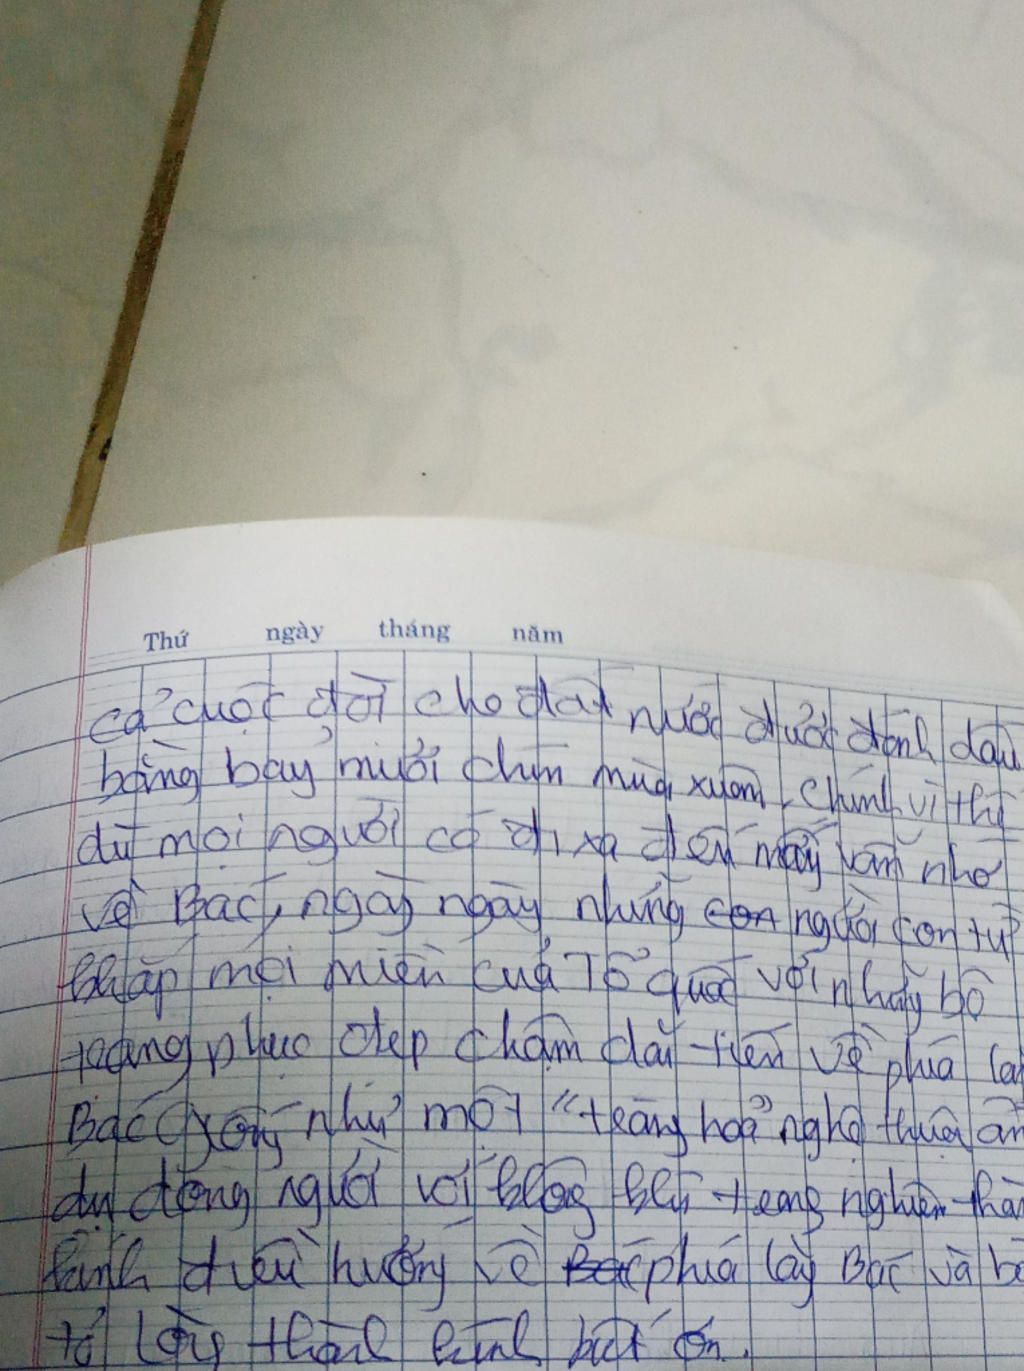 Thứ ngày tháng năm
cả cuộc đời cho đất nước được đánh dấu
bằng bảy mươi chín mùa xuân, chính vì thế
dù mọi người có đi xa đến mấy vẫn nhớ
về Bác, ngày ngày những người con từ
khắp mọi miền của Tổ quốc với những bộ
trang phục đẹp chậm dãi tiến về phía
Bác như một "tràng hoa" nghệ thuật
dụ dòng người với trang nghiêm
kính đều hướng về phía Bác và
tỏ lòng thành kính biết ơn.